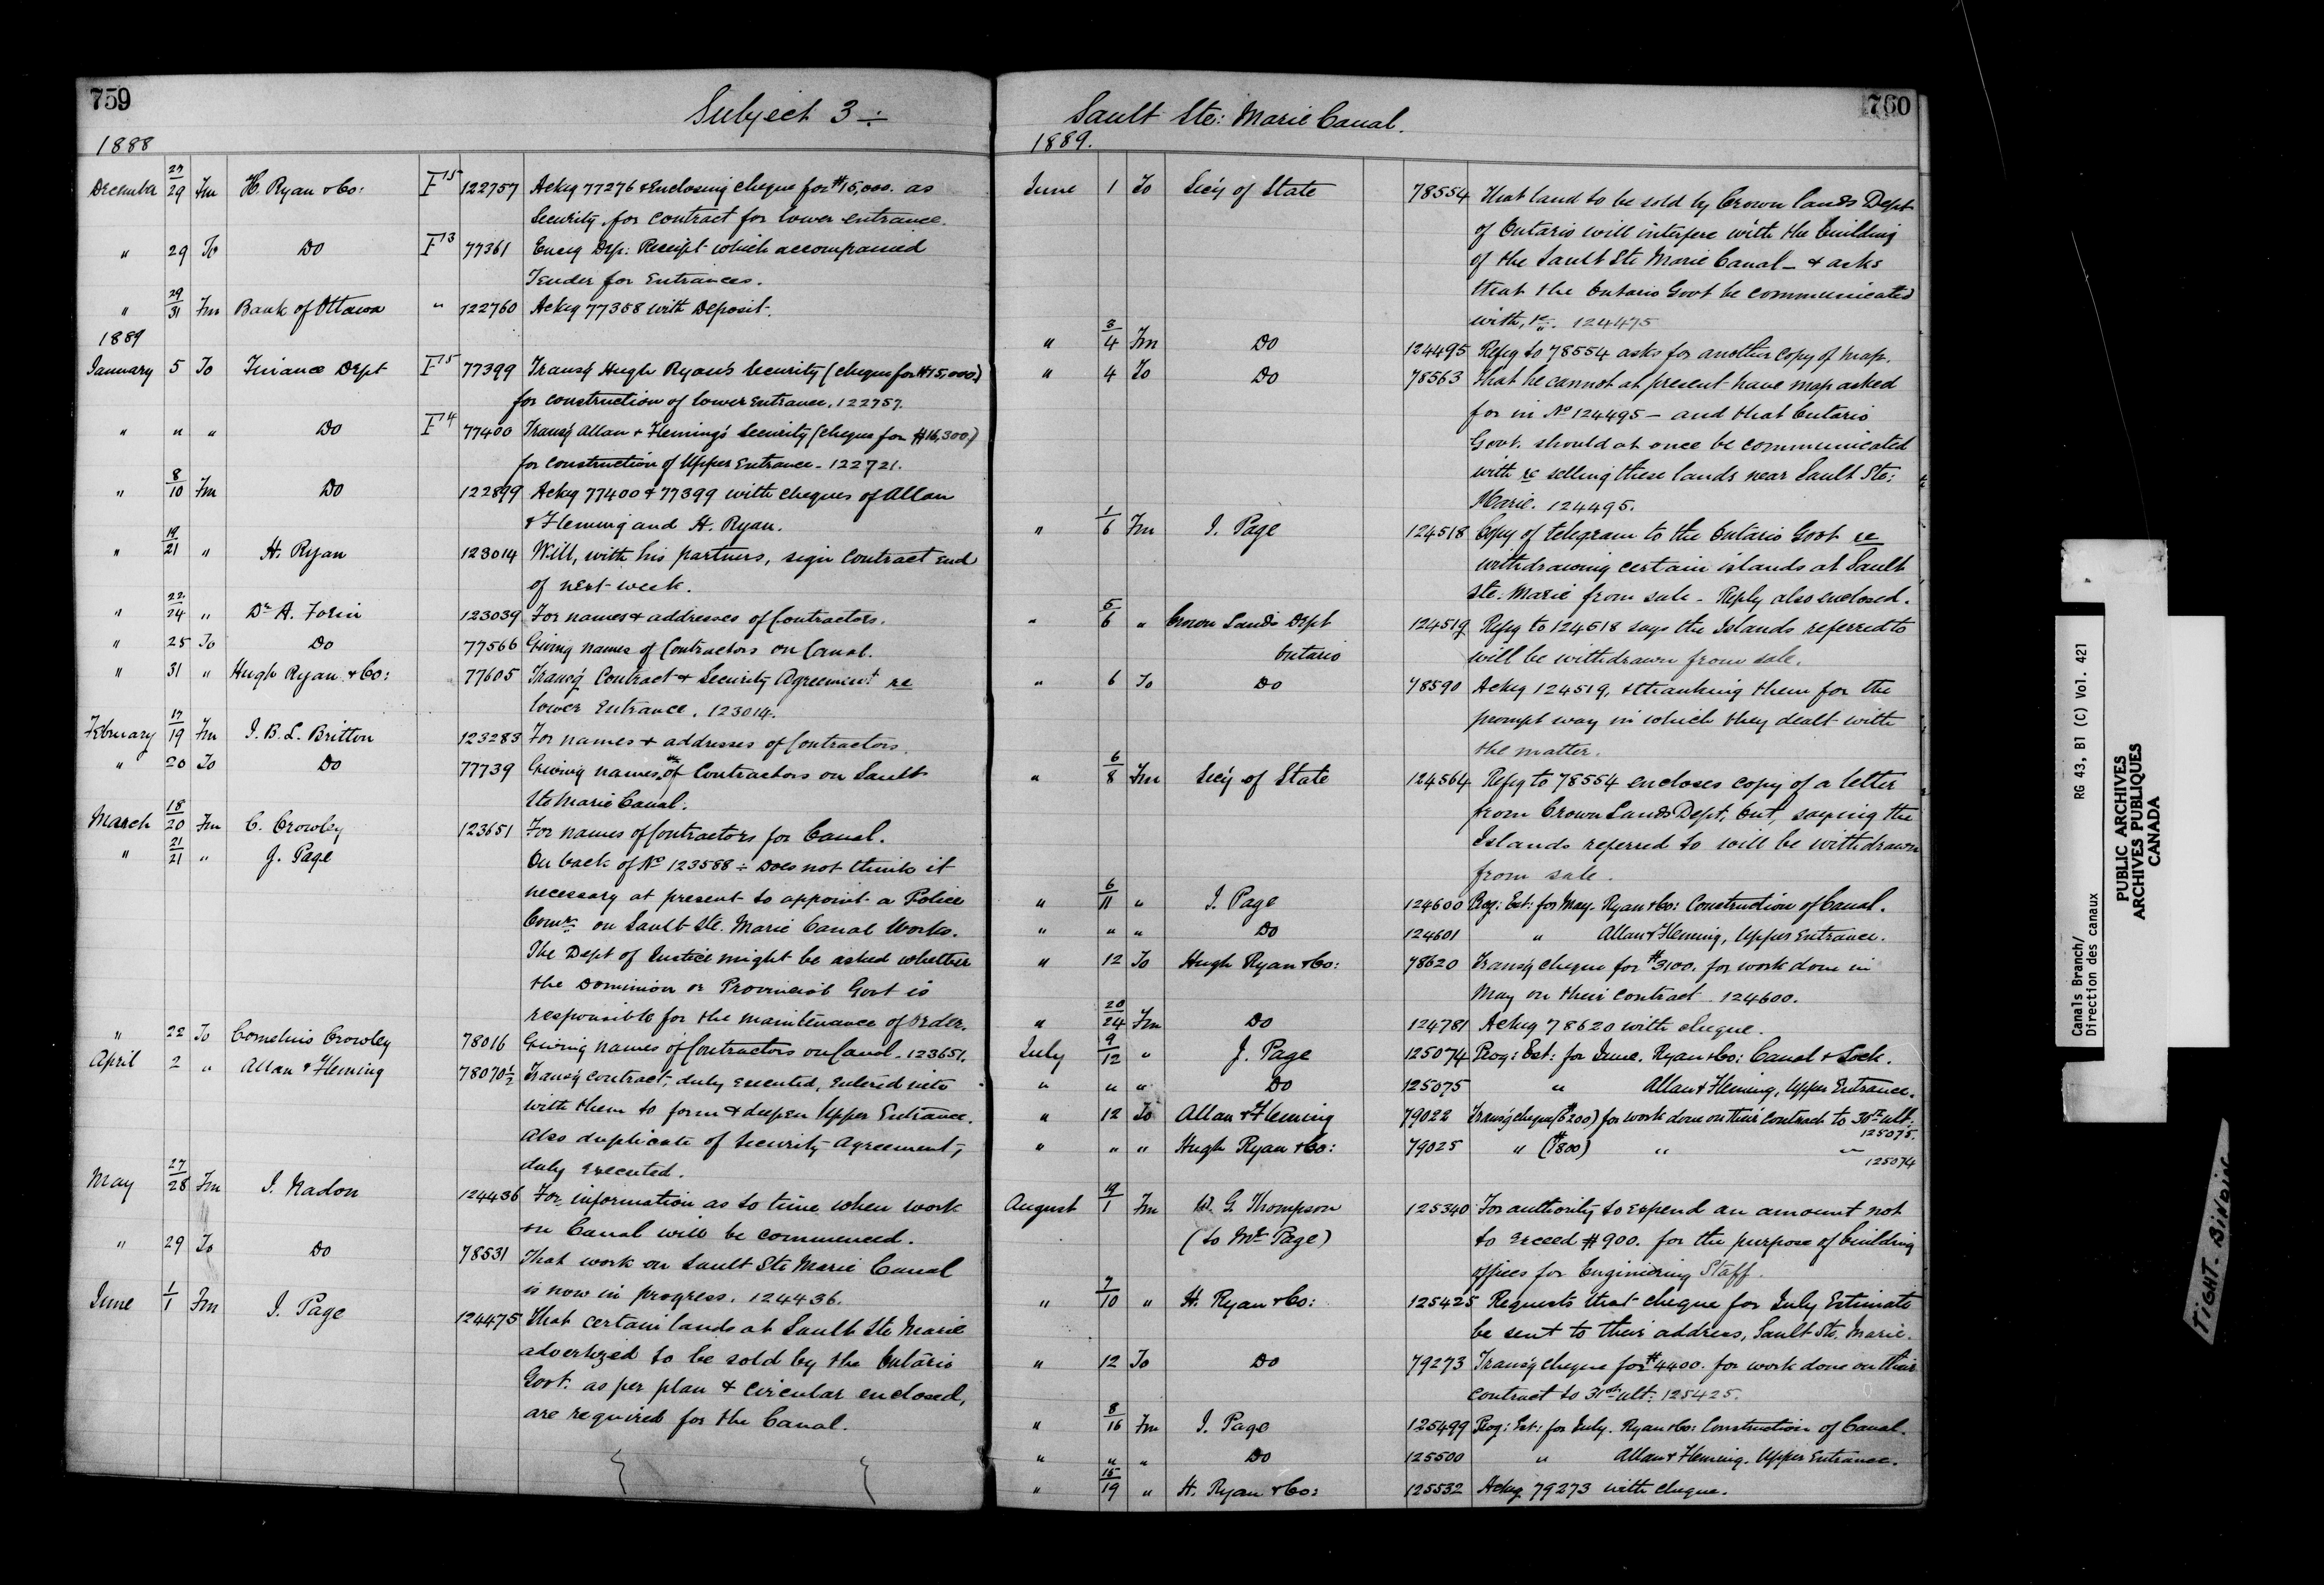 759
Subject 3 ÷
1888
December 27/29 Fm H. Ryan & Co: F15 122757 Ackg 77276 & Enclosing cheque for $15,000. as
Security, for contract for lower entrance.
" 29 To Do F13 77361 Encg Dep: Receipt which accompanied
Tender for Entrances.
" 29/31 Fm Bank of Ottawa " 122760 Ackg 77358 with Deposit.
1889
January 5 To Finance Dept F15 77399 Transg Hugh Ryan's Security (cheque for $15,000)
for construction of lower entrance, 122757.
" " " Do F14 77400 Transg Allan & Fleming's Security (cheque for $16,300)
for construction of Upper Entrance - 122721.
" 8/10 Fm Do 122899 Ackg 77400 & 77399 with cheques of Allan
& Fleming and H. Ryan.
" 19/21 " H. Ryan 123014 Will, with his partners, sign contract end
of next week.
" 22/24 " Dr A. Forin 123039 For names & addresses of Contractors.
" 25 To Do 77566 Giving names of Contractors on Canal.
" 31 " Hugh Ryan & Co: 77605 Transg Contract & Security Agreement re
lower Entrance. 123014.
February 17/19 Fm J. B. L. Britton 123283 For names & addresses of Contractors.
" 20 To Do 77739 Giving names of Contractors on Sault
Ste Marie Canal.
March 18/20 Fm C. Crowley 123651 For names of Contractors for Canal.
" 21/21 " J. Page On back of No 123588 ÷ Does not think it
necessary at present to appoint a Police
Comr on Sault Ste. Marie Canal Works.
The Dept of Justice might be asked whether
the Dominion or Provincial Govt is
responsible for the maintenance of order.
" 22 To Cornelius Crowley 78016 Giving names of Contractors on Canal - 123651.
April 2 " Allan & Fleming 78070½ Transg contract, duly executed, entered into
with them to form & deepen Upper Entrance.
Also duplicate of Security Agreement,
duly executed.
May 27/28 Fm J. Nadon 124436 For information as to time when work
on Canal will be commenced.
" 29 To Do 78531 That work on Sault Ste Marie Canal
is now in progress. 124436.
June 1/1 Fm J. Page 124475 That certain lands at Sault Ste Marie
advertized to be sold by the Ontario
Govt. as per plan & circular enclosed,
are required for the Canal.
760
Sault Ste: Marie Canal.
1889.
June 1 To Secy of State 78554 That land to be sold by Crown Lands Dept
of Ontario will interfere with the building
of the Sault Ste Marie Canal - & asks
that the Ontario Govt be communicated
with, &c. 124475
" 3/4 Fm Do 124495 Refg to 78554 asks for another copy of map.
" 4 To Do 78563 That he cannot at present have map asked
for in No 124495 - and that Ontario
Govt. should at once be communicated
with re selling these lands near Sault Ste:
Marie. 124495.
" 1/6 Fm J. Page 124518 Copy of telegram to the Ontario Govt re
withdrawing certain islands at Sault
Ste. Marie from sale - Reply also enclosed.
" 5/6 " Crown Lands Dept 124519 Refg to 124518 says the Islands referred to
Ontario will be withdrawn from sale.
" 6 To Do 78590 Ackg 124519, & thanking them for the
prompt way in which they dealt with
the matter.
" 6/8 Fm Secy of State 124564 Refg to 78554 encloses copy of a letter
from Crown Lands Dept, Ont, saying the
Islands referred to will be withdrawn
from sale.
" 6/11 " J. Page 124600 Prog: Est: for May. Ryan & Co: Construction of Canal.
" " " Do 124601 " Allan & Fleming, Upper Entrance.
" 12 To Hugh Ryan & Co: 78620 Transg cheque for $3100. for work done in
May on their contract 124600.
" 20/24 Fm Do 124781 Ackg 78620 with cheque.
July 9/12 " J. Page 125074 Prog: Est: for June. Ryan & Co: Canal & Lock.
" " " Do 125075 " Allan & Fleming, Upper Entrance.
" 12 To Allan & Fleming 79022 Transg cheque ($6200) for work done on their contract to 30th ult:
125075.
" " " Hugh Ryan & Co: 79025 " ($800) " "
125074
August 19/1 Fm W. G. Thompson 125340 For authority to expend an amount not
(to Mr Page) to exceed $900. for the purpose of building
offices for Engineering Staff.
" 7/10 " H. Ryan & Co: 125425 Requests that cheque for July Estimate
be sent to their address, Sault Ste. Marie.
" 12 To Do 79273 Transg cheque for $4400. for work done on their
contract to 31st ult: 125425.
" 8/16 Fm J. Page 125499 Prog: Est: for July. Ryan & Co: Construction of Canal.
" " " Do 125500 " Allan & Fleming. Upper Entrance.
" 15/19 " H. Ryan & Co: 125532 Ackg 79273 with cheque.
Canals Branch/
Direction des canaux
RG 43, B1 (C) Vol. 421
PUBLIC ARCHIVES
ARCHIVES PUBLIQUES
CANADA
TIGHT BINDING